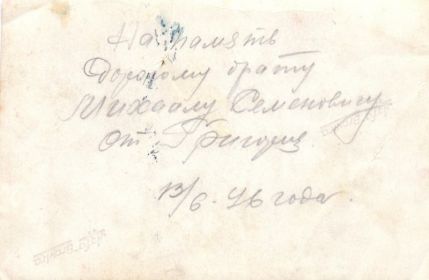 На память
Дорогому брату
Михаилу Семеновичу
от Григория
13/6-46 года.